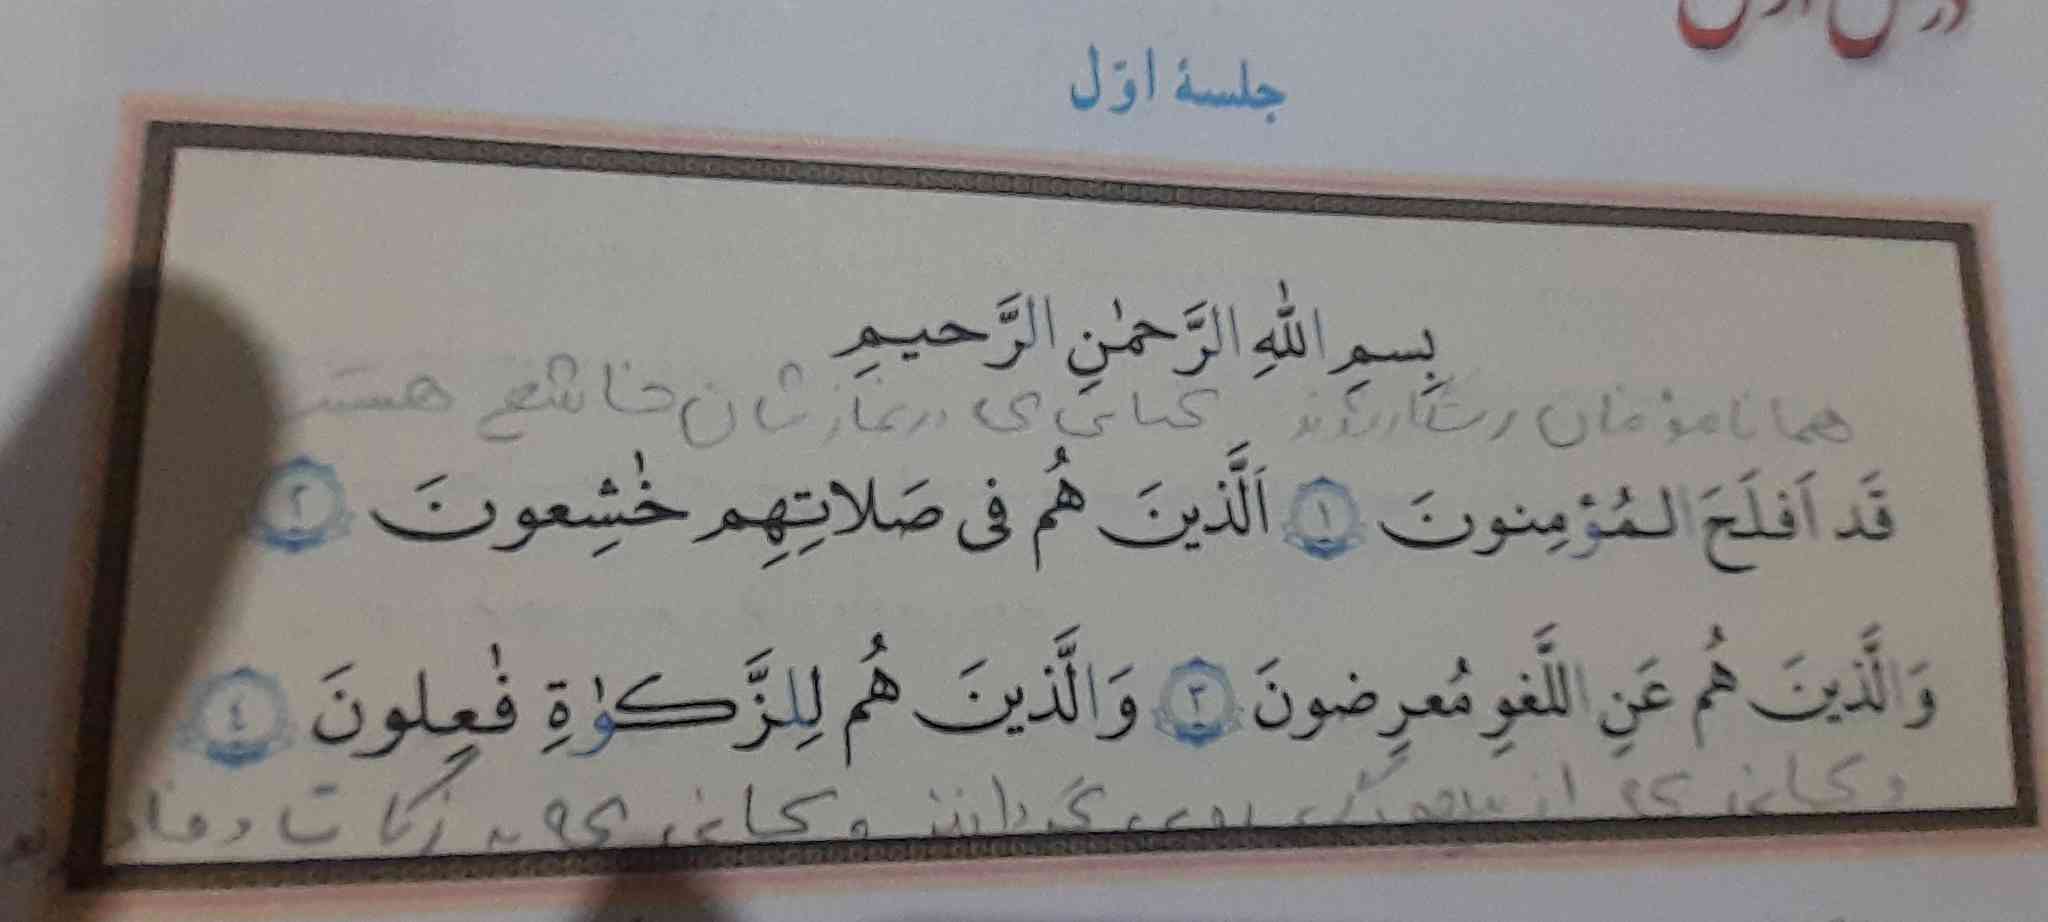 درس اول
جلسهٔ اوّل
بِسمِ اللّٰهِ الرَّحمٰنِ الرَّحیمِ
همانا مؤمنان رستگارند کسانی که در نمازشان خاشع هستند
قَد اَفلَحَ المُؤمِنونَ ١ اَلَّذینَ هُم فی صَلاتِهِم خٰشِعونَ ٢
وَالَّذینَ هُم عَنِ اللَّغوِ مُعرِضونَ ٣ وَالَّذینَ هُم لِلزَّکوٰةِ فٰعِلونَ ٤
و کسانی که از روی گردانند و کسانی که به زکات